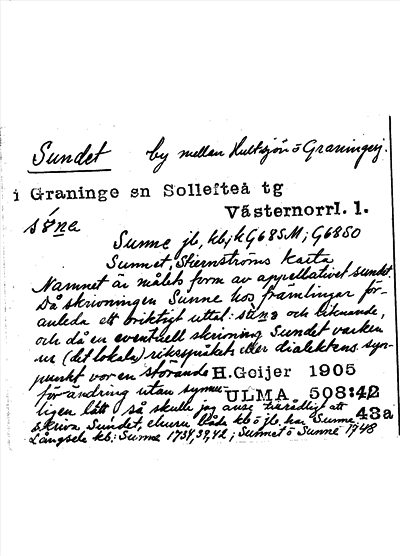 Sundet by mellan Hultsjön o Graningesj.
i Graninge sn Sollefteå tg
Västernorrl. l.
Sunne jb, kb; k G68SM; G68SO
Sunnet, Stiernströms karta
Namnet är målets form av appellativet sundet.
Då skrivningen Sunne hos främlingar för-
anleda ett oriktigt uttal: och liknande,
och då en eventuell skrivning Sundet varken
ur (det lokala) riksspråkets eller dialektens syn-
punkt vore en störande H.Geijer 1905
förändring utan synner- ULMA 508:42
ligen lätt så skulle jag anse tillrådligt att 43a
skriva Sundet, ehuru både kb o jb har Sunne
Långsele kb: Sunne 1734, 39, 42; Sunnet o Sunne 1948